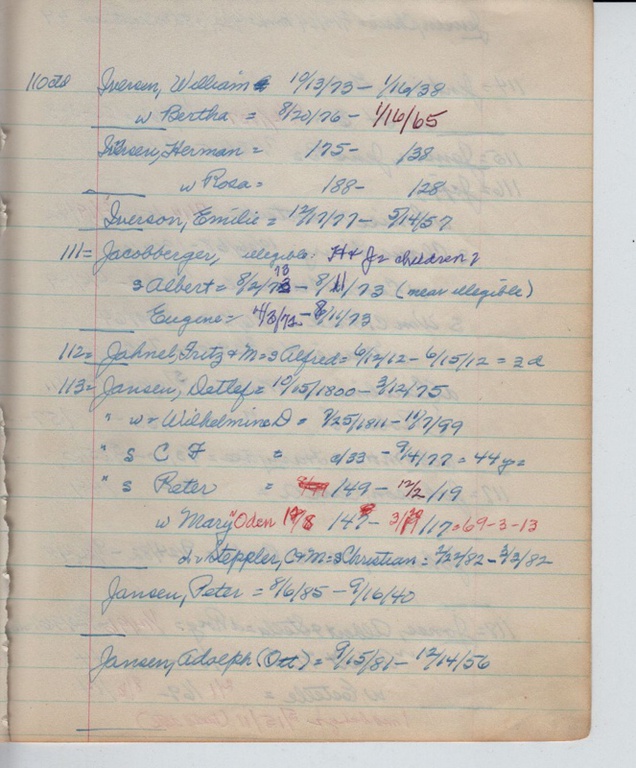 110 Iversen, William 10/13/73 - 1/16/38
w Bertha = 8/20/76 - 1/16/65
Iversen, Herman = 1875 - 1938
w Rosa = 1888 - 1928
Iverson, Emilie = 12/17/77 - 5/14/57
111 = Jacobberger, illegible: H & J = children ?
s Albert = 8/2/ - 8/11/73 (near illegible)
Eugene = 4/3/72 - 8/14/73
112 = Jahnel, Fritz & M = s Alfred = 6/12/12 - 6/15/12 = 3 d
113 = Jansen, Detlef = 10/15/1800 - 3/12/75
" w = Wilhelmine D = 7/25/1811 - 11/7/99
" s C F = /33 - 9/4/77 = 44 y =
" s Peter = 1849 - 12/2/19
w Mary "Oden 184 - 3/ /17 = 69-3-13
d = Steppler, C & M = s Christian = 2/22/82 - 3/3/82
Jansen, Peter = 8/6/85 - 9/16/40
Jansen, Adolph (Ott) = 9/15/81 - 12/14/56